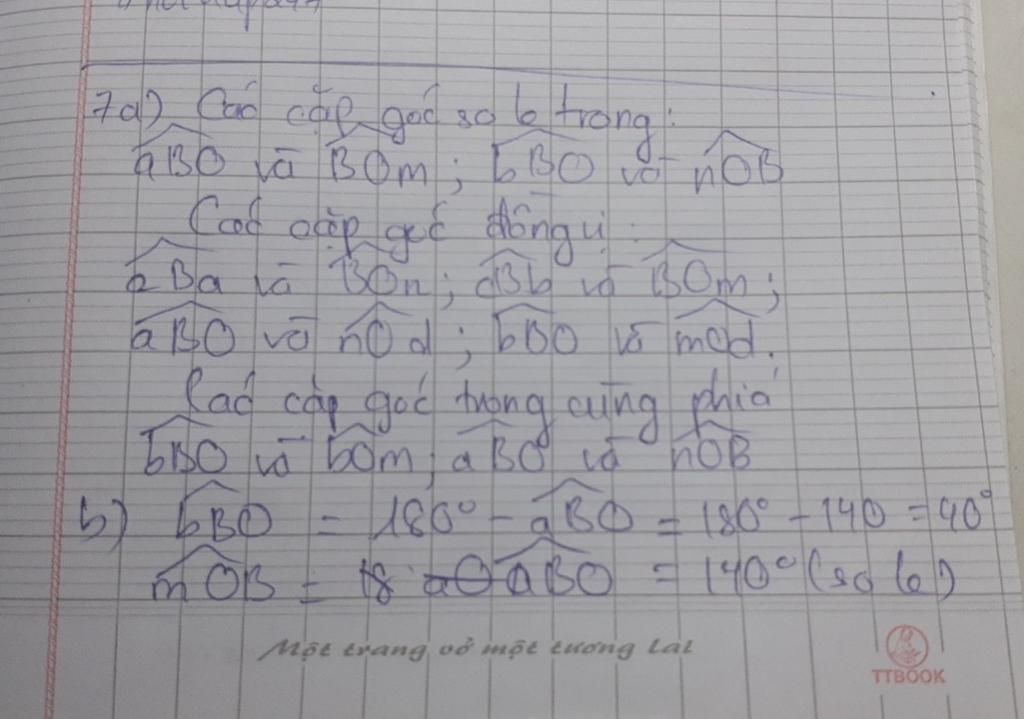 7a) Các cặp góc so le trong:
aBO và BOm ; bBO và nOB
Các cặp góc đồng vị :
aBa và BOn ; dBb và BOm ;
aBO và nOd ; bBO và mOd.
Các cặp góc trong cùng phía
bBO và bOm ; aBO và nOB
b) bBO = 180° - aBO = 180° - 140 = 40°
mOB = aBO = 140° (so le)
Một trang vở một tương lai
TTBOOK